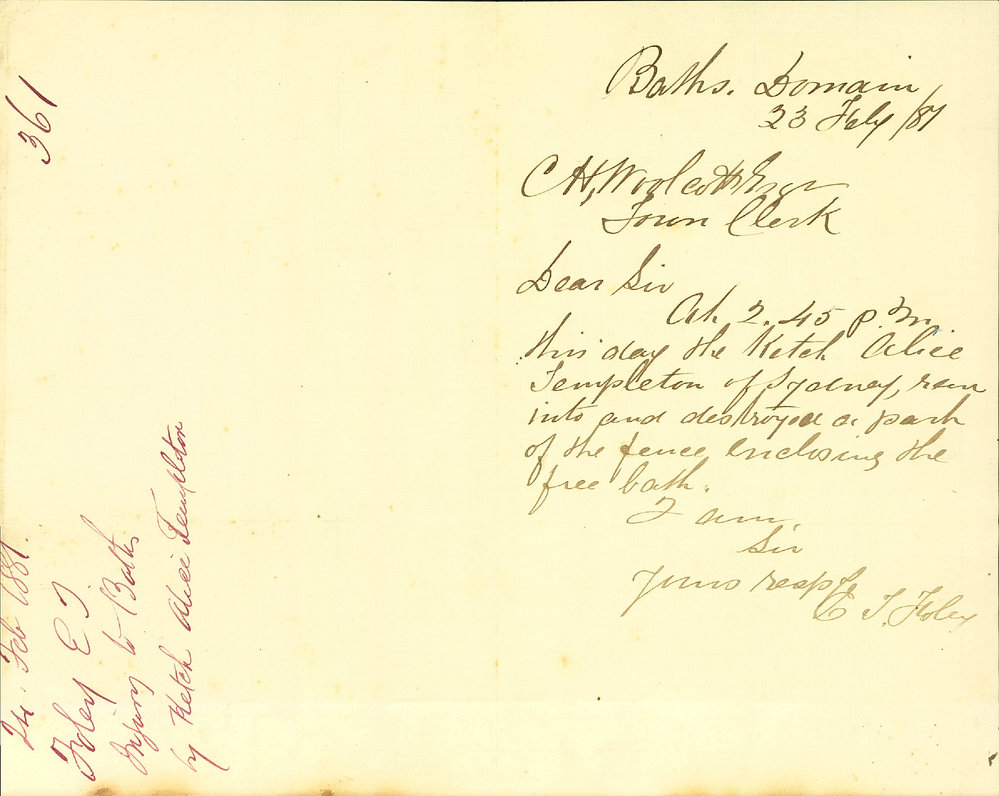 Baths. Domain
23 Feby /81
C H, Woolcott Esqr
Town Clerk
Dear Sir
At 2.45 p.m.
this day the Ketch Alice
Templeton of Sydney, ran
into and destroyed a part
of the fence enclosing the
free bath.
I am,
Sir
Yours respfy
E T. Foley
361
24. Feb 1881.
Foley E T.
Injury to Baths
by Ketch Alice Templeton